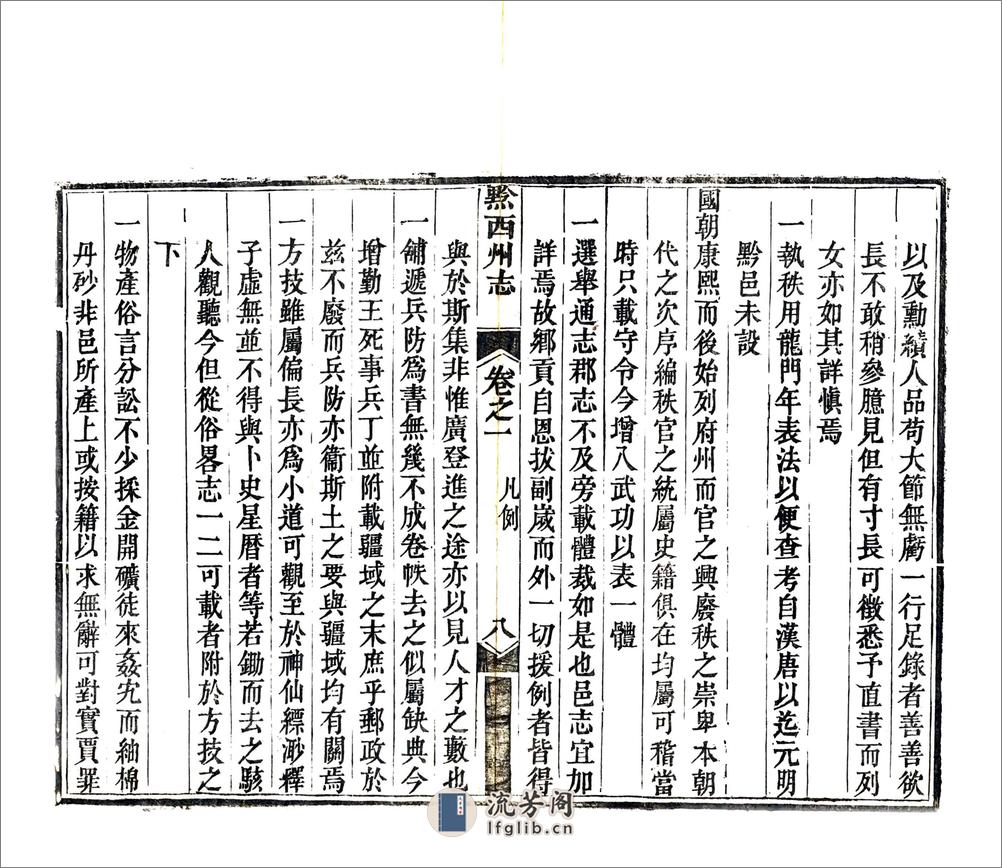 以及勳績人品苟大節無虧一行足錄者善善欲
長不敢稍參臆見但有寸長可徵悉予直書而列
女亦如其詳慎焉
一執秩用龍門年表法以便查考自漢唐以迄元明
黔邑未設
國朝康熙而後始列府州而官之興廢秩之崇卑本朝
代之次序編秩官之統屬史籍俱在均屬可稽當
時只載守令今增入武功以表一體
一選舉通志郡志不及旁載體裁如是也邑志宜加
詳焉故鄉貢自恩拔副歲而外一切援例者皆得
黔西州志
卷之一
凡例
八
與於斯集非惟廣登進之途亦以見人才之數也
一舖遞兵防爲書無幾不成卷帙去之似屬缺典今
增勤王死事兵丁並附載疆域之末庶乎郵政於
茲不廢而兵防亦衞斯土之要與疆域均有關焉
一方技雖屬偏長亦爲小道可觀至於神仙縹渺釋
子虛無並不得與卜史星曆者等若鋤而去之駭
人觀聽今但從俗畧志一二可載者附於方技之
下
一物產俗言分訟不少採金開礦徒來姦宄而紬棉
丹砂非邑所產上或按籍以求無辭可對實賈罪
流芳阁
lfglib.cn